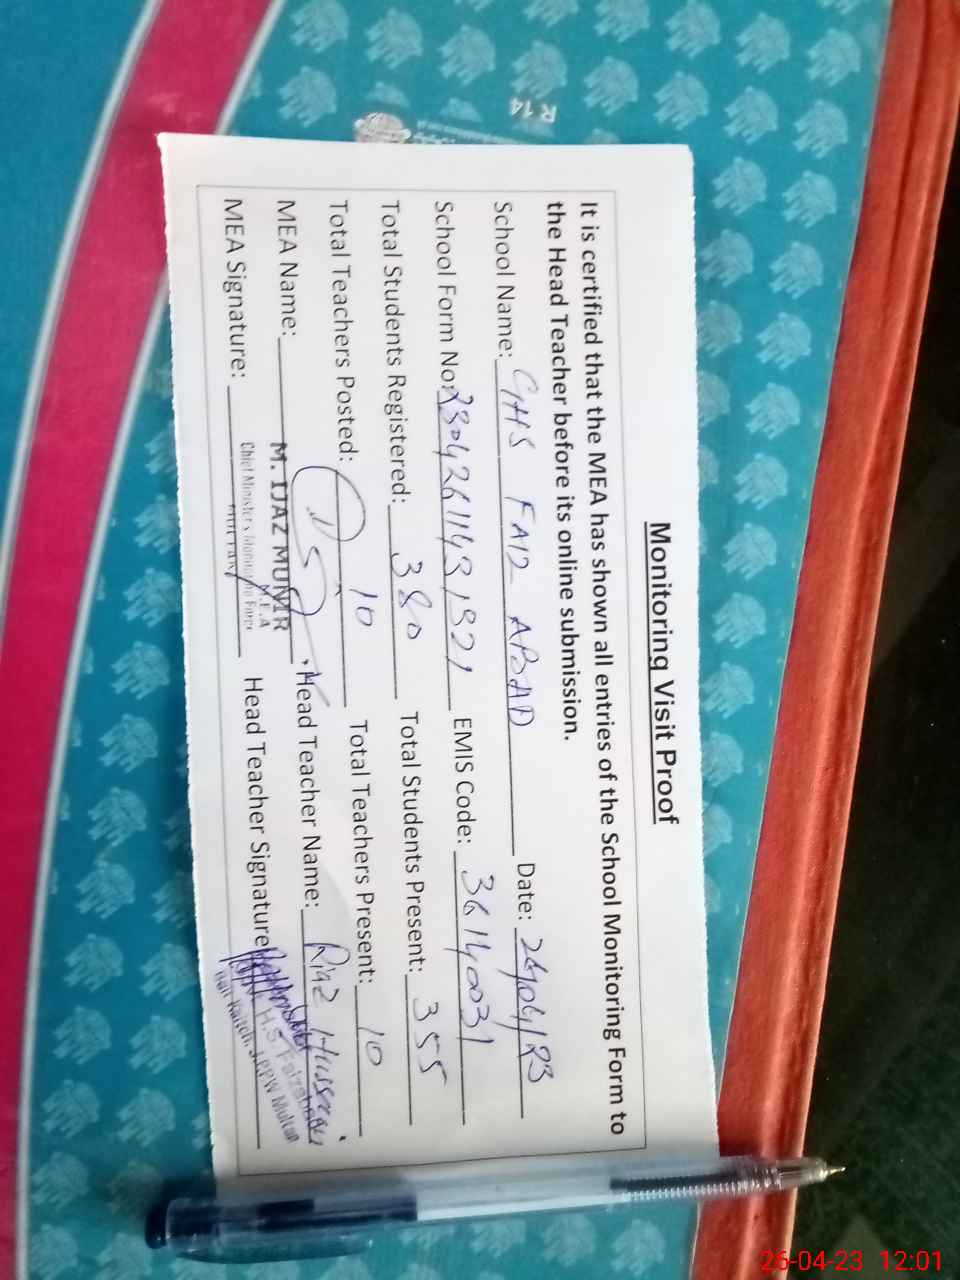 Monitoring Visit Proof
It is certified that the MEA has shown all entries of the School Monitoring Form to
the Head Teacher before its online submission.
School Name: GHS FAIZ ABAD Date: 26/04/23
School Form No: EMIS Code: 36140031
Total Students Registered: 380 Total Students Present: 355
Total Teachers Posted: 10 Total Teachers Present: 10
MEA Name: M. IJAZ MUNIR Head Teacher Name: Riaz Hussain
M.E.A
MEA Signature: Chief Minister's Monitoring Force Head Teacher Signature
H.S Faizabad
Multan
R 14
26-04-23 12:01